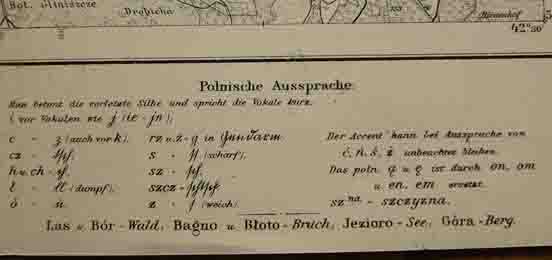 Bot. Mniszcze
Drobicha
42°30'
Polnische Aussprache.
Man betont die vorletzte Silbe und spricht die Vokale kurz.
i vor Vokalen wie j (ie - je),
c - z (auch vor k),
cz - tsch,
h u. ch - ch,
ł - ll (dumpf),
ó - u
rz u. ż - g in Gendarm
s - ss (scharf),
sz - sch,
szcz - schtsch
z - s (weich)
Der Accent kann bei Aussprache von
ć, ń, ś, ź unbeachtet bleiben.
Das poln. ą u. ę ist durch on, om
u. en, em ersetzt.
sz na - szczyzna.
Las u. Bór - Wald, Bagno u. Błoto - Bruch, Jezioro - See, Góra - Berg.